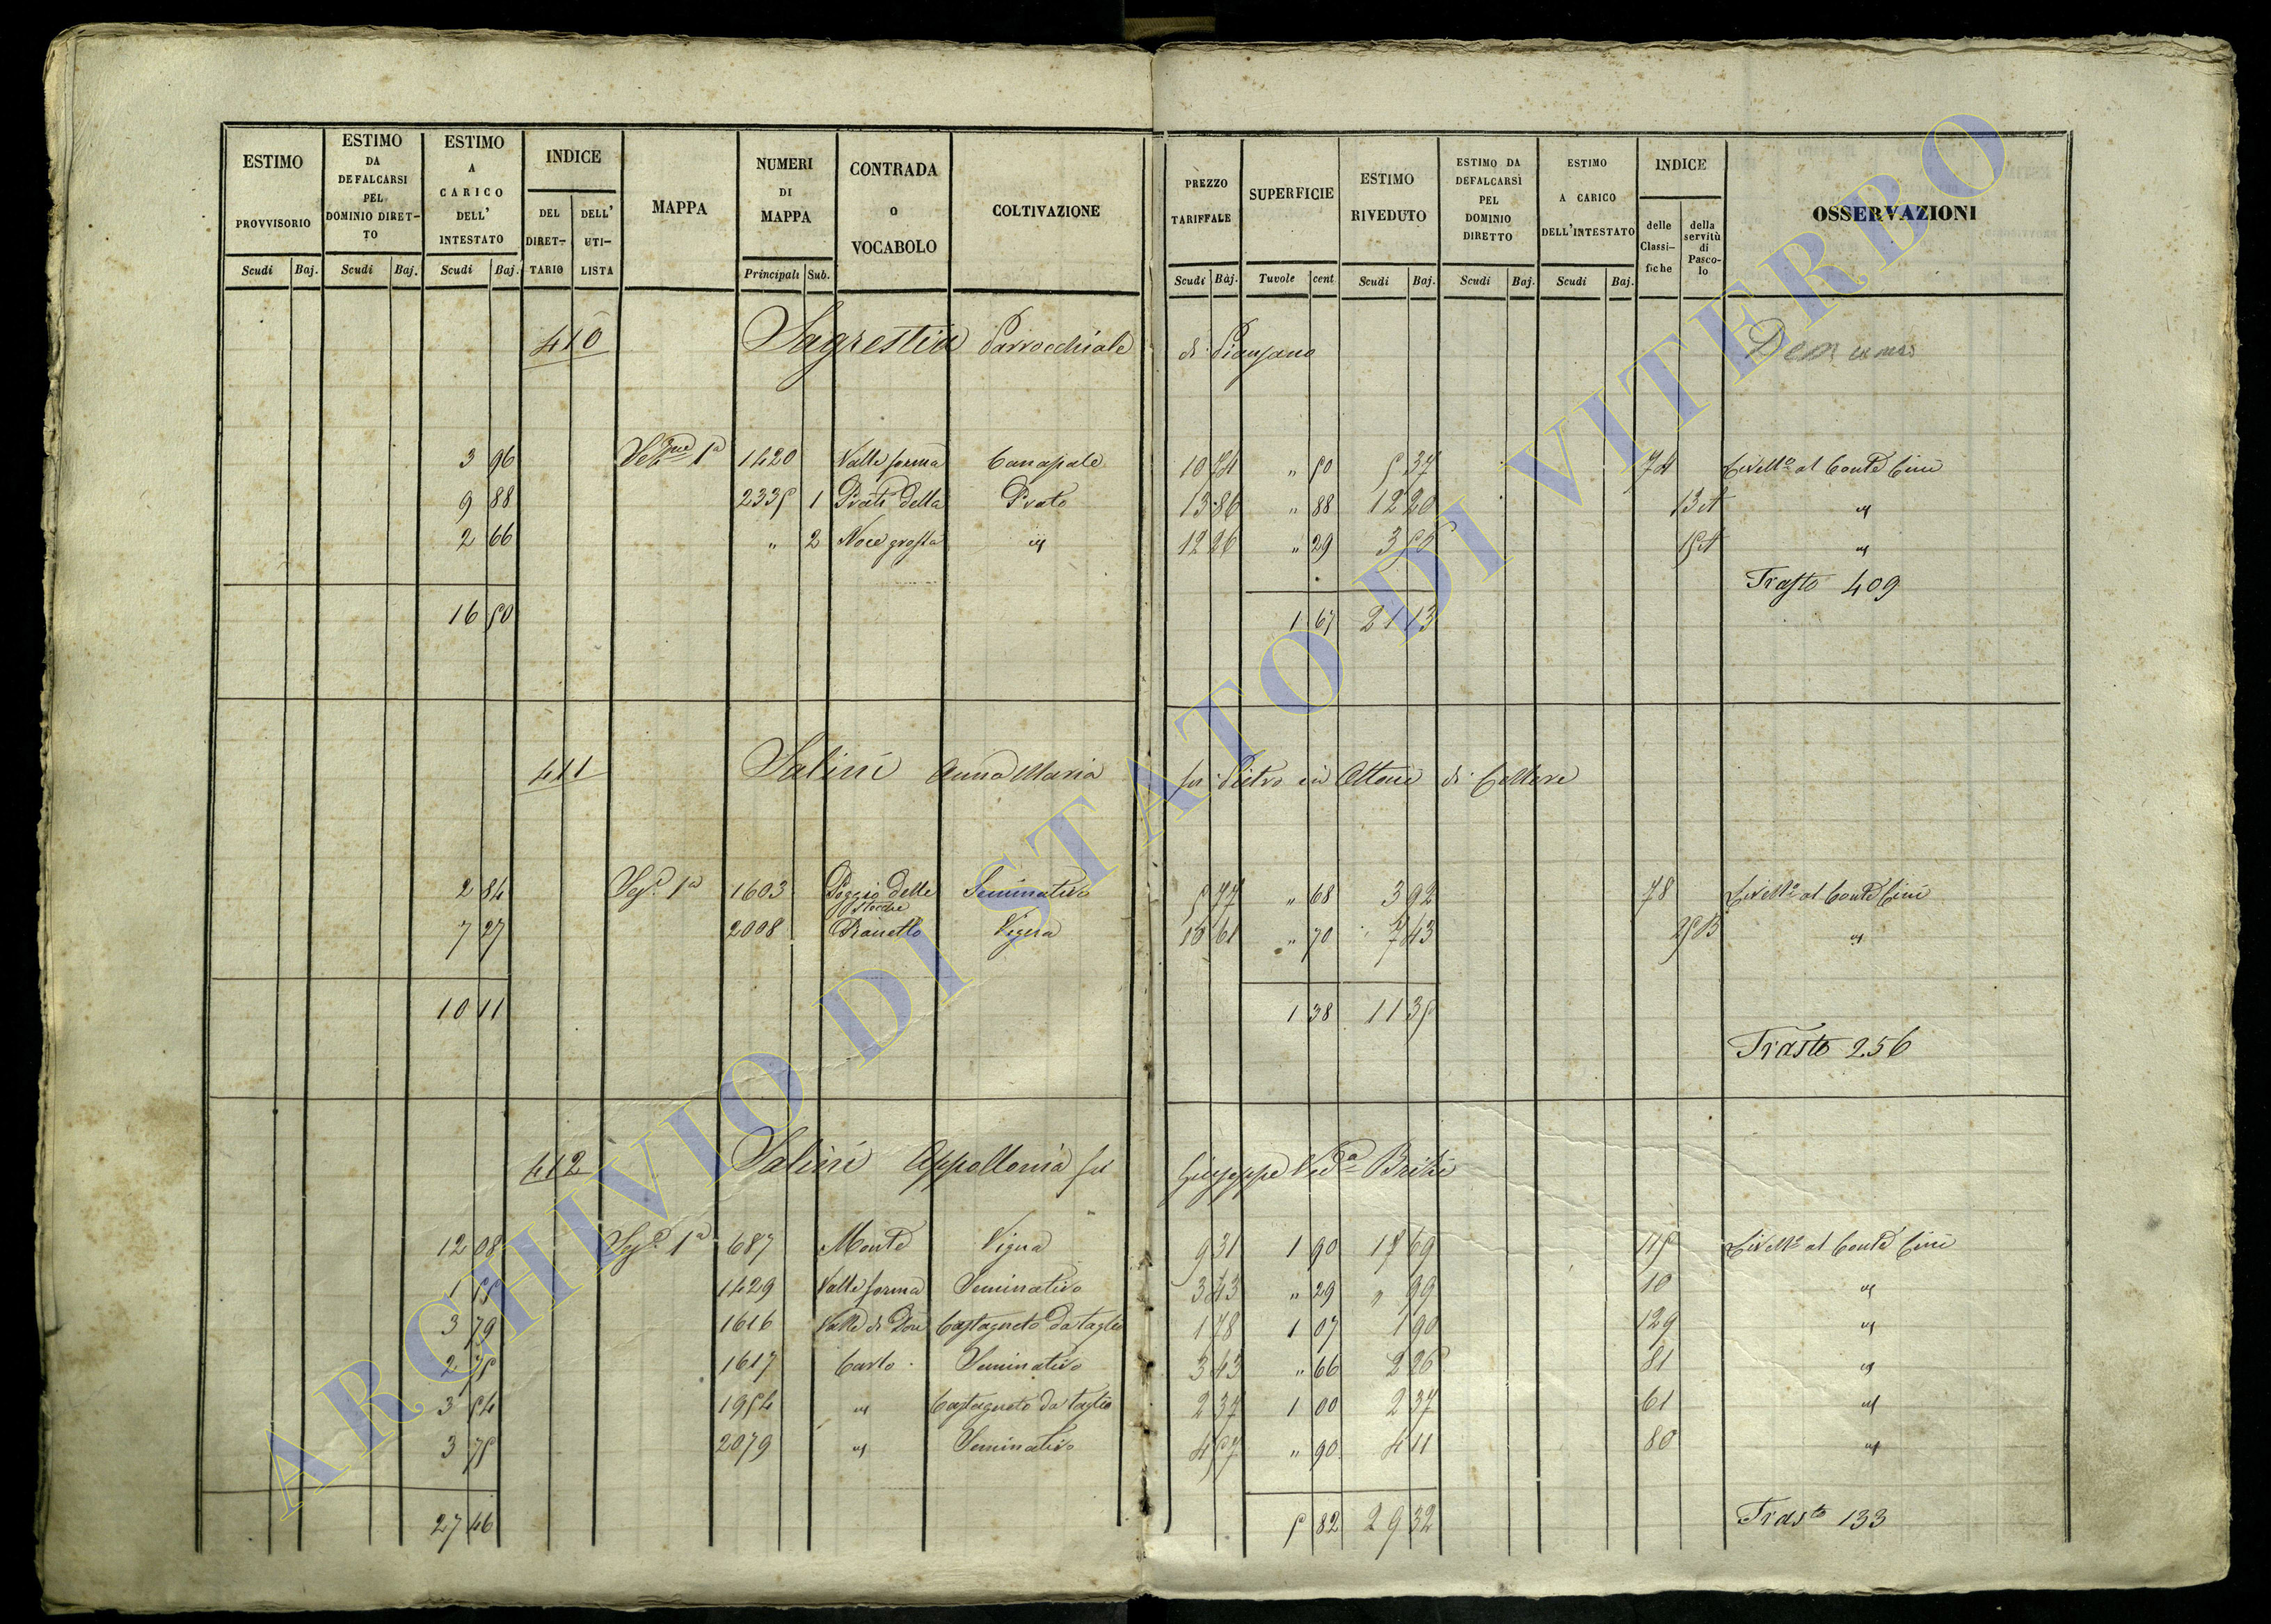 ESTIMO PROVVISORIO Scudi Baj. ESTIMO DA DEFALCARSI PEL DOMINIO DIRETTO Scudi Baj. ESTIMO A CARICO DELL' INTESTATO Scudi Baj. INDICE DEL DIRETTARIO DELL' UTILISTA MAPPA NUMERI DI MAPPA Principali Sub. CONTRADA O VOCABOLO COLTIVAZIONE PREZZO TARIFFALE Scudi Baj. SUPERFICIE Tuvole cent ESTIMO RIVEDUTO Scudi Baj. ESTIMO DA DEFALCARSI PEL DOMINIO DIRETTO Scudi Baj. ESTIMO A CARICO DELL'INTESTATO Scudi Baj. INDICE delle Classifiche della servitù di Pascolo OSSERVAZIONI
410 Sagrestia Parrocchiale di Pianzano
3 96 1a 1420 Valle forma Canapale 10 74 " 50 5 37 74 Livello al Conte Cini
9 88 2335 1 Prati della Prato 13 86 " 88 12 20 13 A "
2 66 " 2 Noce grossa " 12 26 " 29 3 56 15 A "
Trasto 409
16 50 1 67 21 13
411 Salini Anna Maria fu Pietro in Ottavi di Cellere
2 84 Seg.e 1a 1603 Poggio delle Stecche Seminativo 5 77 " 68 3 92 78 Livello al Conte Cini
7 27 2008 Pianetto Vigna 10 61 " 70 7 43 25 B "
10 11 1 38 11 35
Trasto 256
412 Salini Appollonia fu Giuseppe Ved.a Brizi
12 08 Seg.e 1a 687 Monte Vigna 9 31 1 90 17 69 115 Livello al Conte Cini
1 55 1429 Valle forma Seminativo 3 43 " 29 " 99 10 "
3 79 1616 Valle di Castagneto da taglio 1 78 1 07 1 90 129 "
2 75 1617 Carlo Seminativo 3 43 " 66 2 26 81 "
3 54 1954 " Castagneto da taglio 2 37 1 00 2 37 61 "
3 75 2079 " Seminativo 4 57 " 90 4 11 80 "
27 46 5 82 29 32 Trasto 133
ARCHIVIO DI STATO DI VITERBO